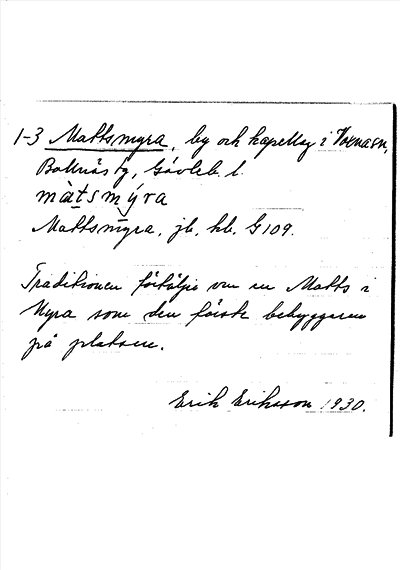 1-3 Mattsmyra, by och kapellag i Voxna sn,
Bollnäs tg, Gävleb. l.
màtsmýra
Mattsmyra, jb, hb. G 109.
Traditionen förtäljer om en Matts i
Myra som den förste bebyggaren
på platsen.
Erik Eriksson 1930.